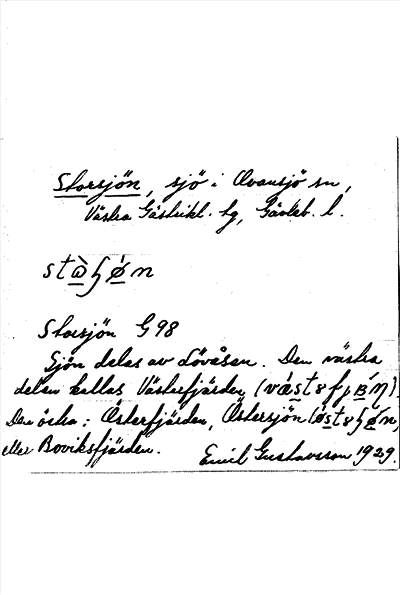 Storsjön, sjö i Ovansjö sn,
Västra Gästrikl. hg, Gävleb. l.
Storsjön G 98
Sjön delas av Lövåsen. Den västra
delen kallas Västerfjärden,
Den östra: Österfjärden, Östersjön
eller Boviksfjärden. Emil Gustavsson 1929.